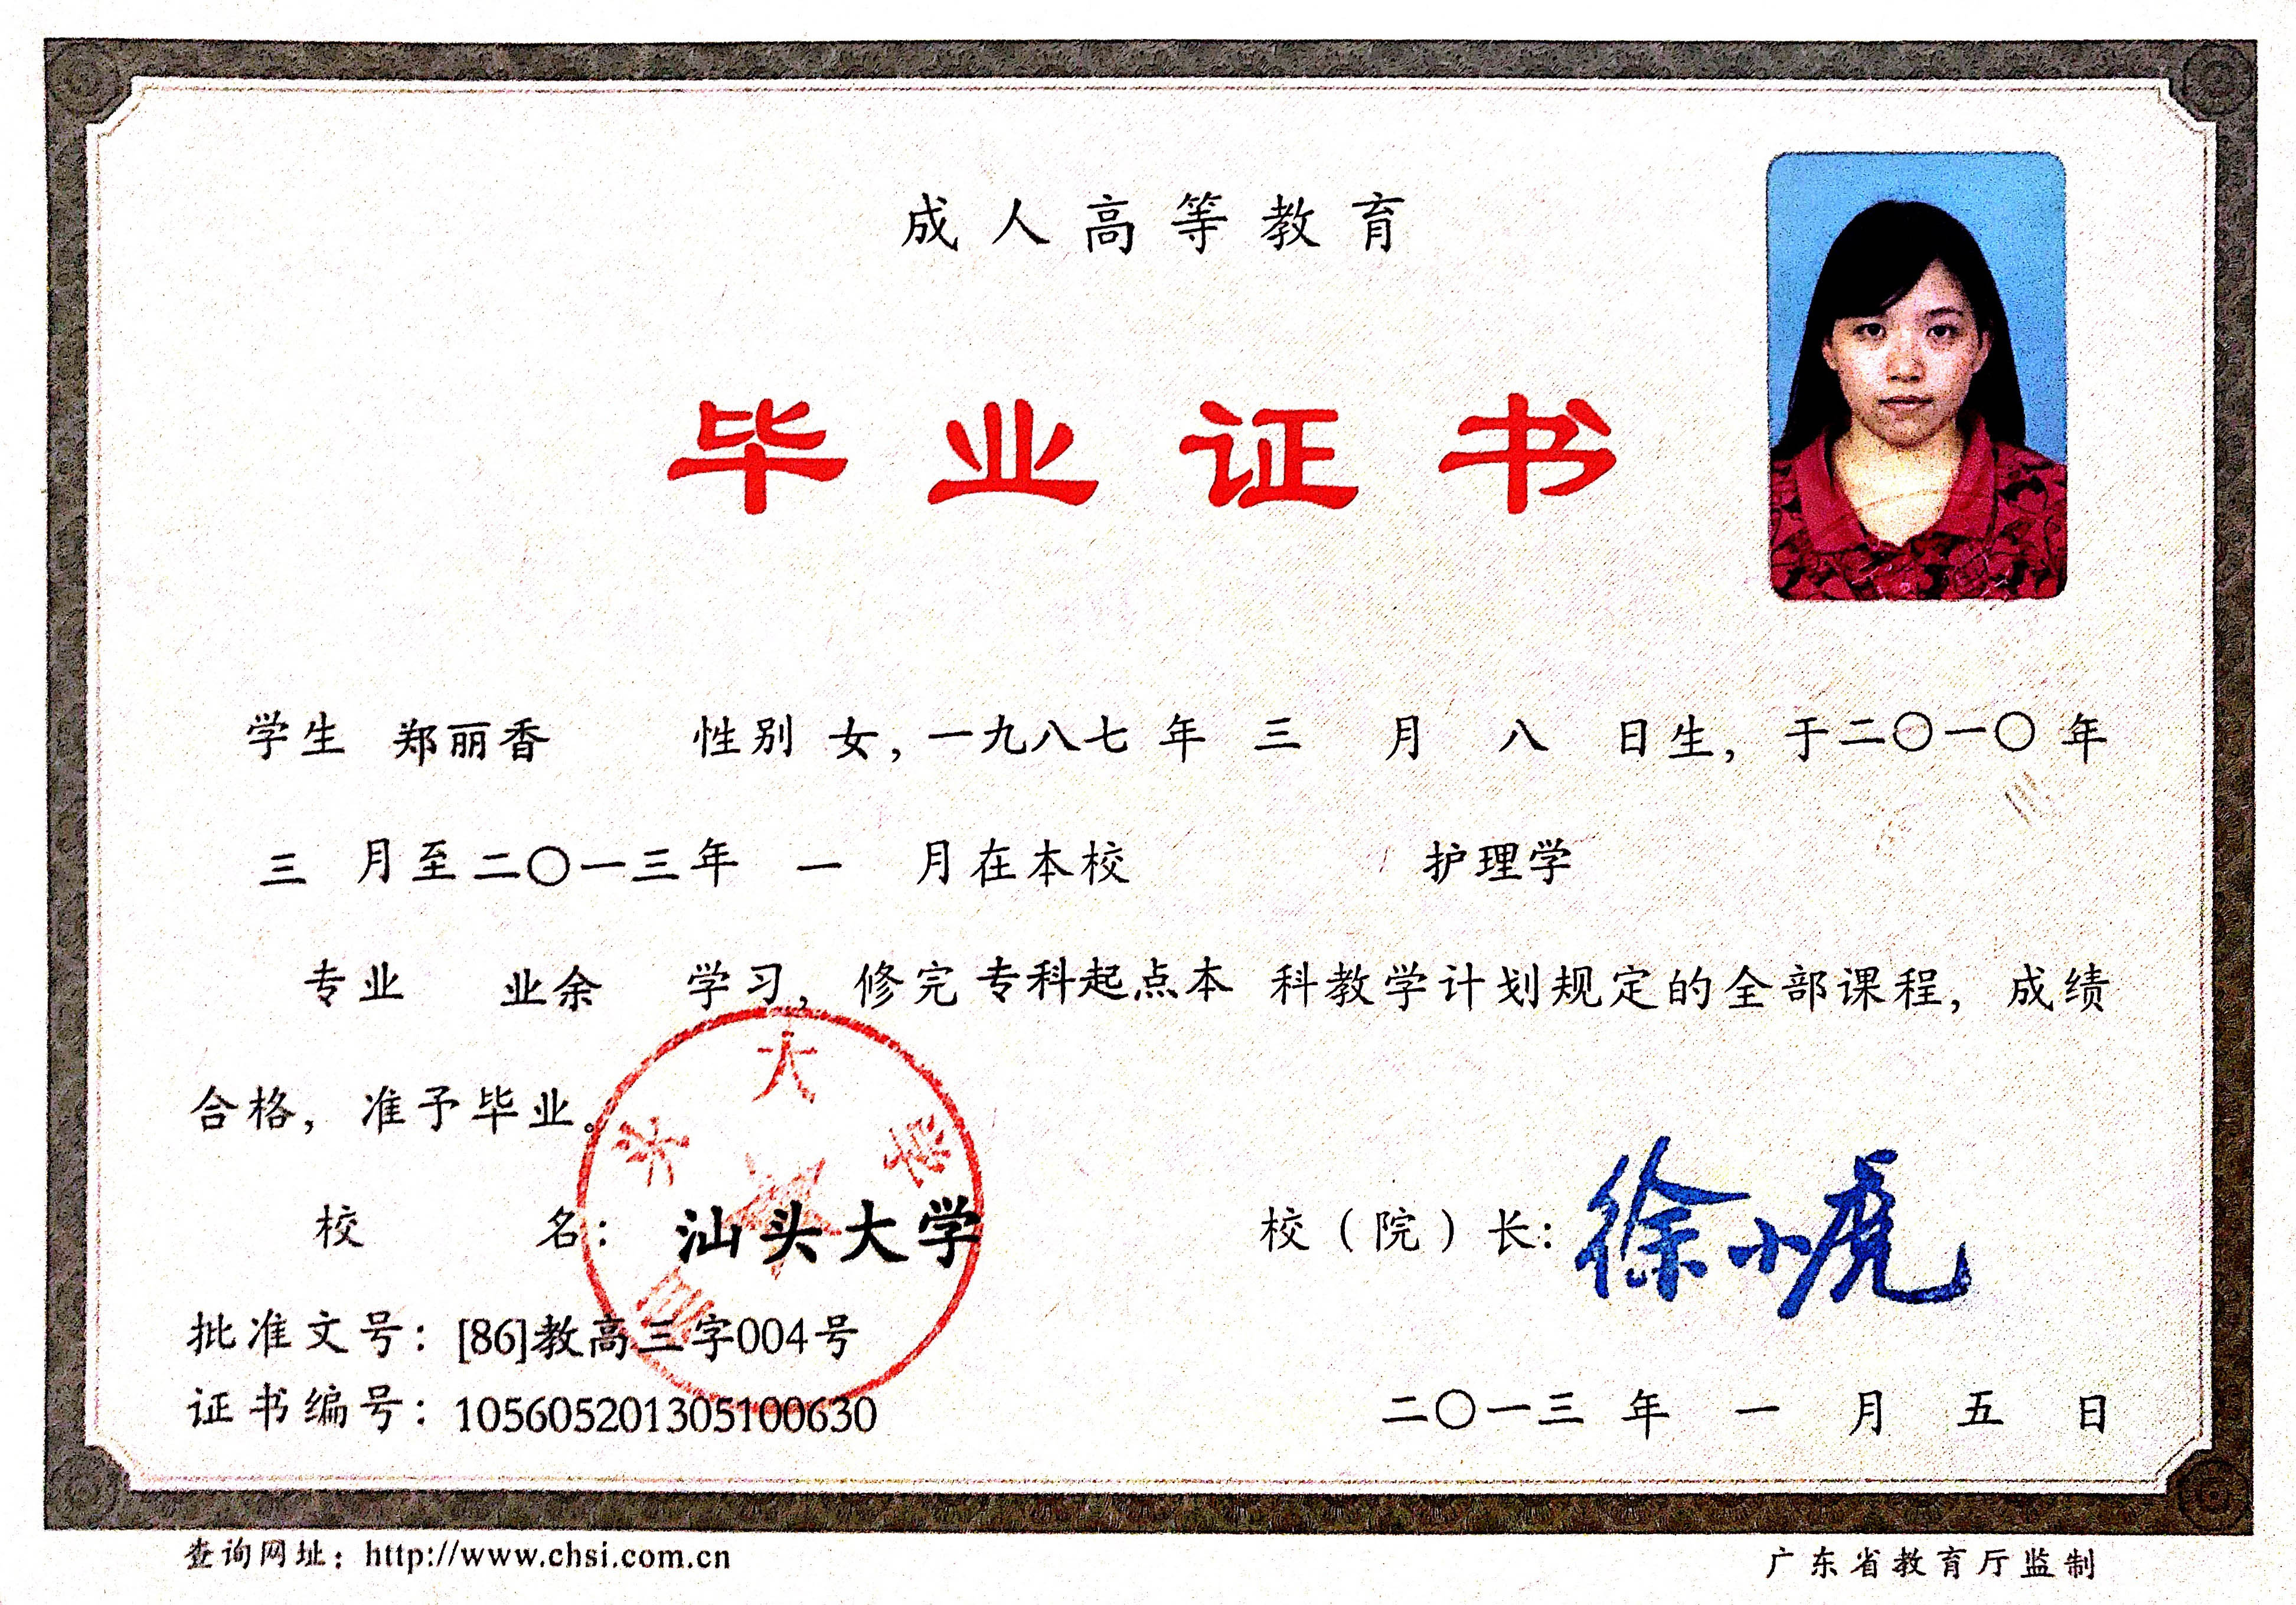 成人高等教育
毕业证书
学生 郑丽香 性别 女，一九八七 年 三 月 八 日生，于二〇一〇 年
三 月至二〇一三年 一 月在本校 护理学
专业 业余 学习，修完专科起点本 科教学计划规定的全部课程，成绩
合格，准予毕业。
校 名：汕头大学 校（院）长：徐小虎
汕头大学
批准文号：[86]教高三字004号
证书编号：105605201305100630 二〇一三 年 一 月 五 日
查询网址：http://www.chsi.com.cn 广东省教育厅监制